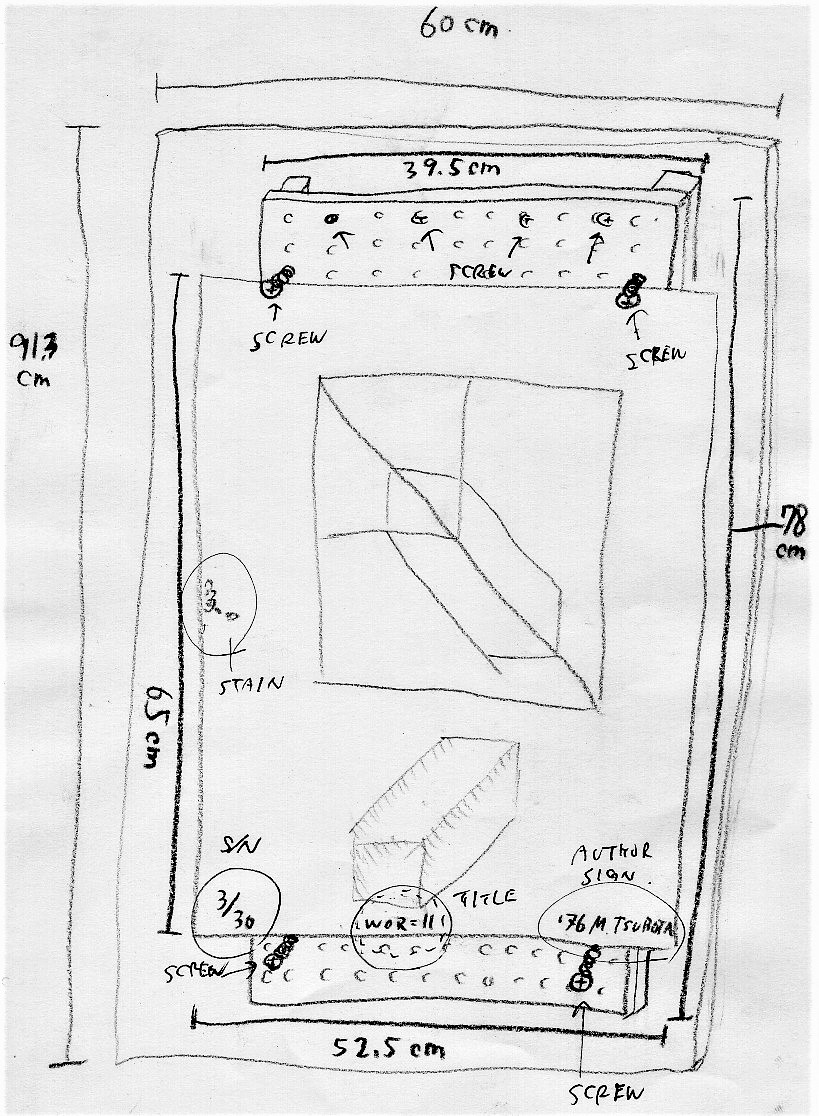 60 cm
39.5 cm
SCREW
SCREW
SCREW
91.3
cm
78
cm
STAIN
65 cm
S/N
AUTHOR
SIGN.
3/30
TITLE
WOR-111
'76 M. TSUBOTA
SCREW
52.5 cm
SCREW